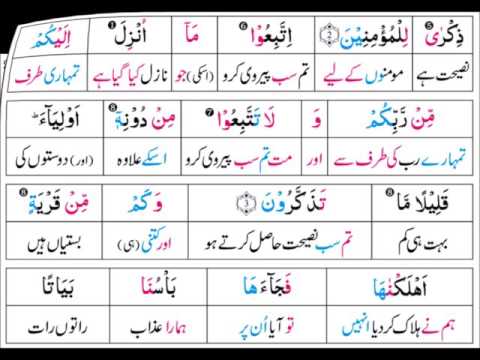 ذِكْرٰى ⑤ لِلْمُؤْمِنِيْنَ ② اِتَّبِعُوْا ⑥ مَآ اُنْزِلَ ① اِلَيْكُمْ
نصیحت ہے مومنوں کے لیے تم سب پیروی کرو (اسکی) جو نازل کیا گیا ہے تمہاری طرف
مِّنْ رَّبِّكُمْ وَ لَا تَتَّبِعُوْا ⑦ مِنْ دُوْنِهٖٓ ⑧ اَوْلِيَآءَ ؕ
تمہارے رب کی طرف سے اور مت تم سب پیروی کرو اسکے علاوہ (اور) دوستوں کی
قَلِيْلًا مَّا ⑧ تَذَكَّرُوْنَ ③ وَكَمْ مِّنْ قَرْيَةٍ ⑧
بہت ہی کم تم سب نصیحت حاصل کرتے ہو اور کتنی (ہی) بستیاں ہیں
اَهْلَكْنٰهَا فَجَآءَهَا بَاْسُنَا بَيَاتًا
ہم نے ہلاک کردیا انہیں تو آیا اُن پر ہمارا عذاب راتوں رات